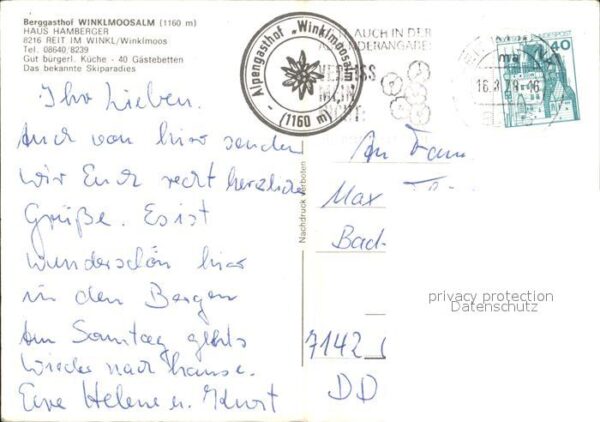 Berggasthof WINKLMOOSALM (1160 m)
HAUS HAMBERGER
8216 REIT IM WINKL/Winklmoos
Tel. 08640/8239
Gut bürgerl. Küche - 40 Gästebetten
Das bekannte Skiparadies
Alpengasthof "Winklmoosalm"
- (1160 m) -
AUCH IN DER
40
Ihr Lieben.
Auch von hier senden
wir Euch recht herzliche
Grüße. Es ist
wunderschön hier
in den Bergen
Am Sonntag gehts
wieder nach hause.
Eure Helene u. Kurt
Nachdruck verboten
An Fam
Max
Bad-
7142
DD
privacy protection
Datenschutz